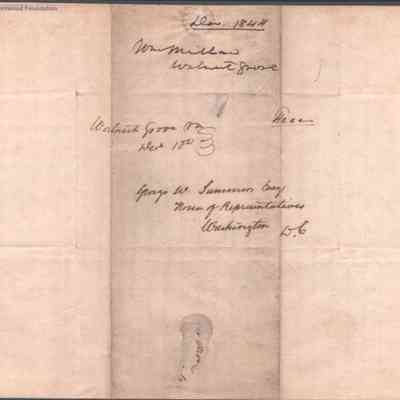 Dec 1844
Wm Millar
Walnut Grove
Walnut Grove Va
Dec 10th
Free
George W. Summers Esq
House of Representatives
Washington D.C